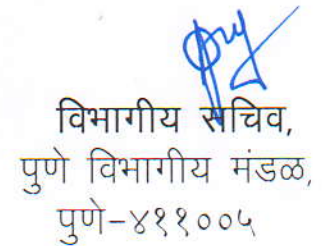 विभागीय सचिव,
पुणे विभागीय मंडळ,
पुणे-४११००५